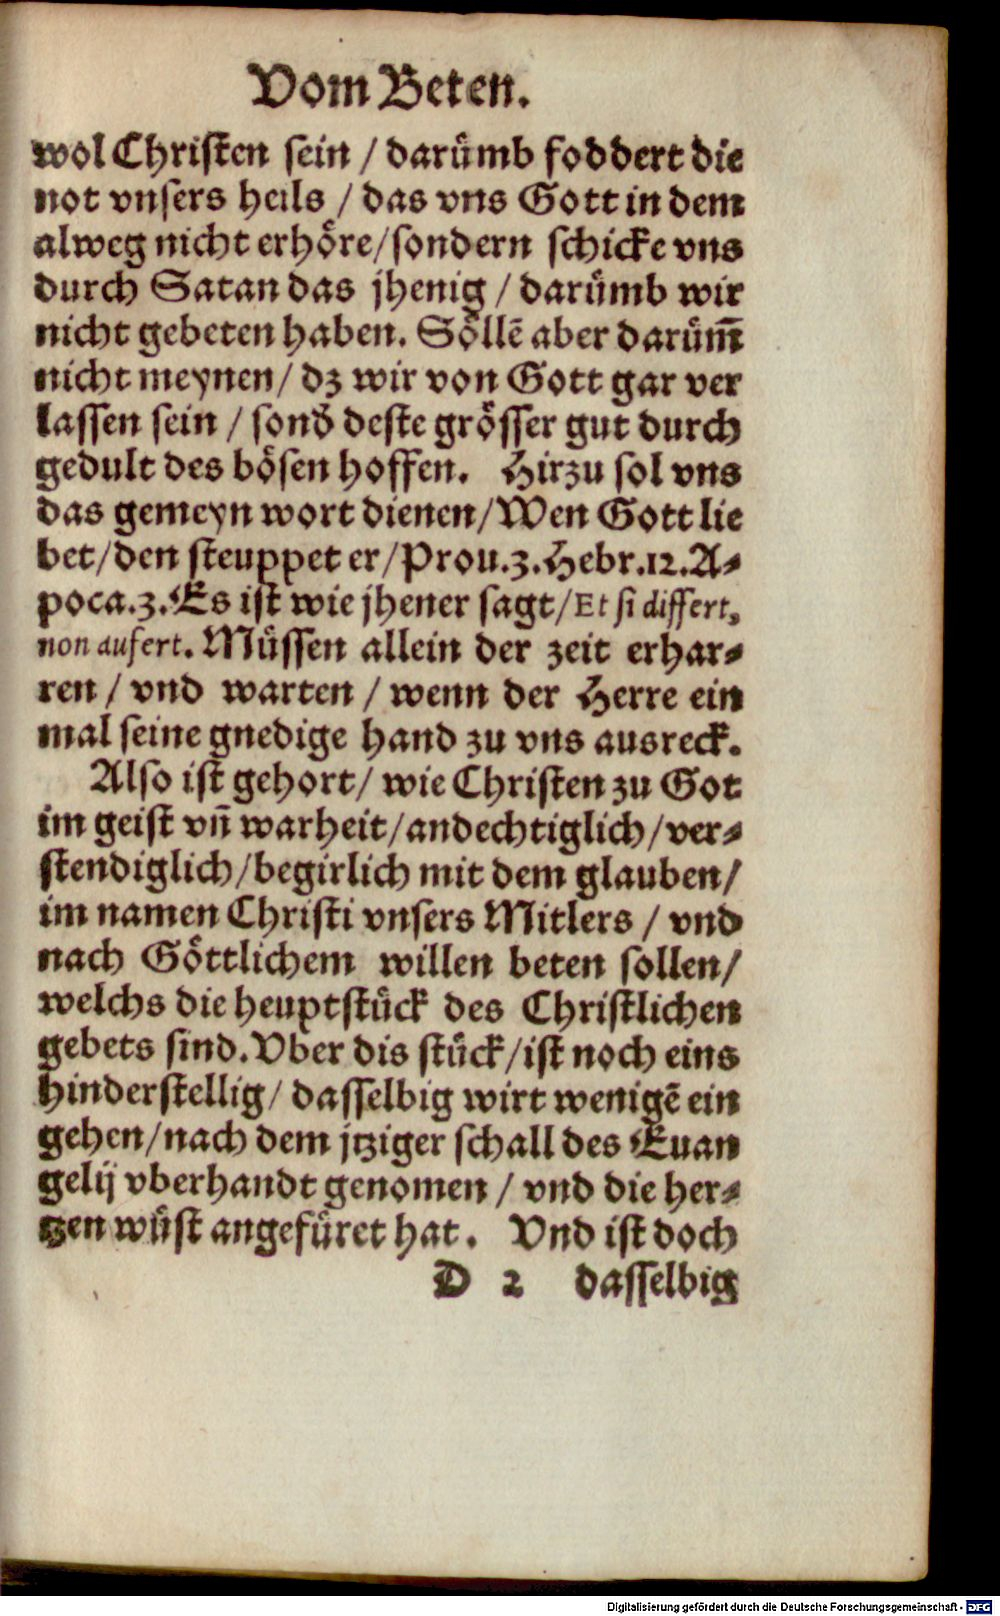 Vom Beten.
wol Christen sein / darümb foddert die
not vnsers heils / das vns Gott in dem
alweg nicht erhöre/sondern schicke vns
durch Satan das jhenig / darümb wir
nicht gebeten haben. Söllē aber darüm̄
nicht meynen/ dz wir von Gott gar ver
lassen sein / sond̓ deste grösser gut durch
gedult des bösen hoffen. Hirzu sol vns
das gemeyn wort dienen/Wen Gott lie
bet/den steuppet er/Prou.3.Hebr.12.A⸗
poca.3.Es ist wie jhener sagt/Et si differt,
non aufert. Müssen allein der zeit erhar⸗
ren / vnd warten / wenn der Herre ein
mal seine gnedige hand zu vns ausreck.
Also ist gehort/ wie Christen zu Got
im geist vn̄ warheit/andechtiglich/ver⸗
stendiglich/begirlich mit dem glauben/
im namen Christi vnsers Mitlers / vnd
nach Göttlichem willen beten sollen/
welchs die heuptstück des Christlichen
gebets sind.Vber dis stück/ist noch eins
hinderstellig/ dasselbig wirt wenigē ein
gehen/nach dem jtziger schall des Euan
gelij vberhandt genomen / vnd die her⸗
tzen wüst angefüret hat. Vnd ist doch
D 2 dasselbig
Digitalisierung gefördert durch die Deutsche Forschungsgemeinschaft - DFG